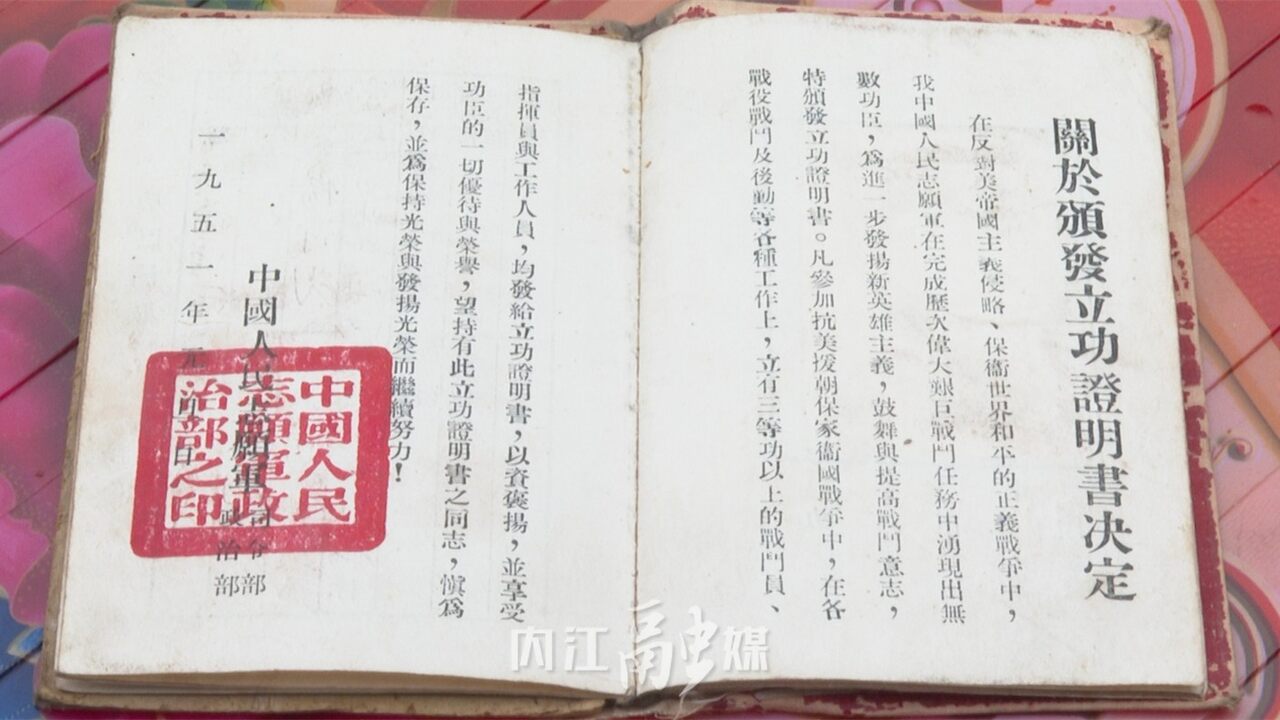 關於頒發立功證明書决定
在反對美帝國主義侵略、保衞世界和平的正義戰爭中，
我中國人民志願軍在完成歷次偉大艱巨戰鬥任務中湧現出無
數功臣，爲進一步發揚新英雄主義，鼓舞與提高戰鬥意志，
特頒發立功證明書。凡參加抗美援朝保家衞國戰爭中，在各
戰役戰鬥及後勤等各種工作上，立有三等功以上的戰鬥員、
指揮員與工作人員，均發給立功證明書，以資褒揚，並享受
功臣的一切優待與榮譽，望持有此立功證明書之同志，慎爲
保存，並爲保持光榮與發揚光榮而繼續努力！
中國人民志願軍司令部
政治部
一九五一年元月 日
中國人民
志願軍政
治部之印
内江融媒